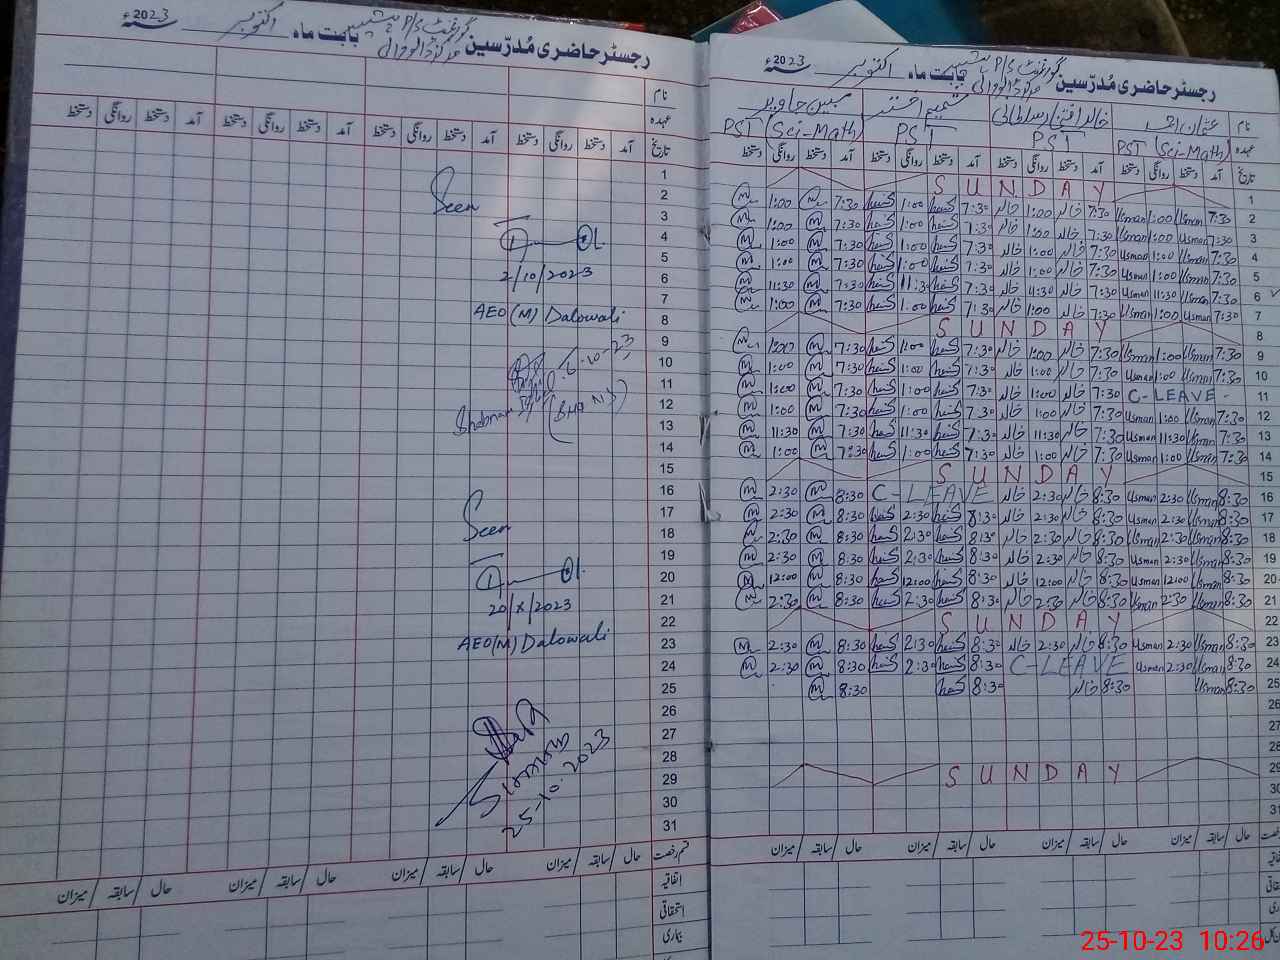 رجسٹر حاضری مُدرّسین گورنمنٹ P/S بابت ماہ اکتوبر 2023ء
نام
عہدہ
تاریخ آمد دستخط روانگی دستخط آمد دستخط روانگی دستخط آمد دستخط روانگی دستخط آمد دستخط روانگی دستخط
1
2
3
4
5
6
7
8
9
10
11
12
13
14
15
16
17
18
19
20
21
22
23
24
25
26
27
28
29
30
31
Seen
2/10/2023
AEO (M) Dalowali
6-10-23
Shabnam
Seen
20/X/2023
AEO(M) Dalowali
25-10-2023
قسم رخصت حال / سابقہ / میزان حال / سابقہ / میزان حال / سابقہ / میزان حال / سابقہ / میزان
اتفاقیہ
استحقاقی
بیماری
رجسٹر حاضری مُدرّسین گورنمنٹ P/S بابت ماہ اکتوبر 2023ء
نام عثمان احمد خالد شمیم اختر مبین جاوید
عہدہ PST (Sci-Math) PST PST PST (Sci-Math)
تاریخ آمد دستخط روانگی دستخط آمد دستخط روانگی دستخط آمد دستخط روانگی دستخط آمد دستخط روانگی دستخط
1 SUNDAY
2 7:30 Usman 1:00 Usman 7:30 خالد 1:00 خالد 7:30 1:00 7:30 1:00
3 7:30 Usman 1:00 Usman 7:30 خالد 1:00 خالد 7:30 1:00 7:30 1:00
4 7:30 Usman 1:00 Usman 7:30 خالد 1:00 خالد 7:30 1:00 7:30 1:00
5 7:30 Usman 1:00 Usman 7:30 خالد 1:00 خالد 7:30 1:00 7:30 1:00
6 7:30 Usman 11:30 Usman 7:30 خالد 11:30 خالد 7:30 11:30 7:30 11:30
7 7:30 Usman 1:00 Usman 7:30 خالد 1:00 خالد 7:30 1:00 7:30 1:00
8 SUNDAY
9 7:30 Usman 1:00 Usman 7:30 خالد 1:00 خالد 7:30 1:00 7:30 1:00
10 7:30 Usman 1:00 Usman 7:30 خالد 1:00 خالد 7:30 1:00 7:30 1:00
11 C-LEAVE 7:30 خالد 1:00 خالد 7:30 1:00 7:30 1:00
12 7:30 Usman 1:00 Usman 7:30 خالد 1:00 خالد 7:30 1:00 7:30 1:00
13 7:30 Usman 11:30 Usman 7:30 خالد 11:30 خالد 7:30 11:30 7:30 11:30
14 7:30 Usman 1:00 Usman 7:30 خالد 1:00 خالد 7:30 1:00 7:30 1:00
15 SUNDAY
16 8:30 Usman 2:30 Usman 8:30 خالد 2:30 خالد C-LEAVE 8:30 2:30
17 8:30 Usman 2:30 Usman 8:30 خالد 2:30 خالد 8:30 2:30 8:30 2:30
18 8:30 Usman 2:30 Usman 8:30 خالد 2:30 خالد 8:30 2:30 8:30 2:30
19 8:30 Usman 2:30 Usman 8:30 خالد 2:30 خالد 8:30 2:30 8:30 2:30
20 8:30 Usman 12:00 Usman 8:30 خالد 12:00 خالد 8:30 12:00 8:30 12:00
21 8:30 Usman 2:30 Usman 8:30 خالد 2:30 خالد 8:30 2:30 8:30 2:30
22 SUNDAY
23 8:30 Usman 2:30 Usman 8:30 خالد 2:30 خالد 8:30 2:30 8:30 2:30
24 8:30 Usman 2:30 Usman C-LEAVE 8:30 2:30 8:30 2:30
25 8:30 Usman 8:30 خالد 8:30 8:30
26
27
28
29 SUNDAY
30
31
حال / سابقہ / میزان حال / سابقہ / میزان حال / سابقہ / میزان حال / سابقہ / میزان
25-10-23 10:26